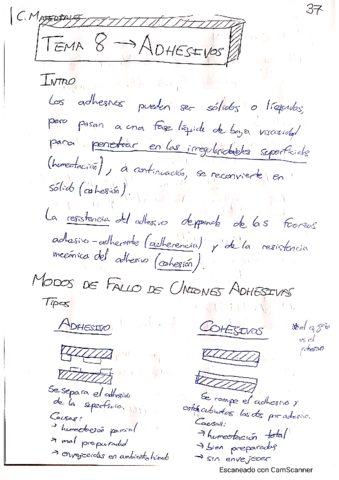 C. Materiales
37
TEMA 8 → ADHESIVOS
INTRO
Los adhesivos pueden ser sólidos o líquidos,
pero pasan a una fase líquida de baja viscosidad
para penetrar en las irregularidades superficiales
(humectación), a continuación, se reconvierte en
sólido (cohesión).
La resistencia del adhesivo depende de las fuerzas
adhesivo-adherente (adherencia) y de la resistencia
mecánica del adhesivo (cohesión).
MODOS DE FALLO DE UNIONES ADHESIVAS
TIPOS
ADHESIVO
COHESIVOS
Se separa el adhesivo
de la superficie.
Causas:
→ humectación parcial
→ mal preparadas
→ envejecidas en ambiente húmedo
Se rompe el adhesivo y
están cubiertas las dos por adhesivo.
Causas:
→ humectación total
→ bien preparadas
→ sin envejecer
Escaneado con CamScanner